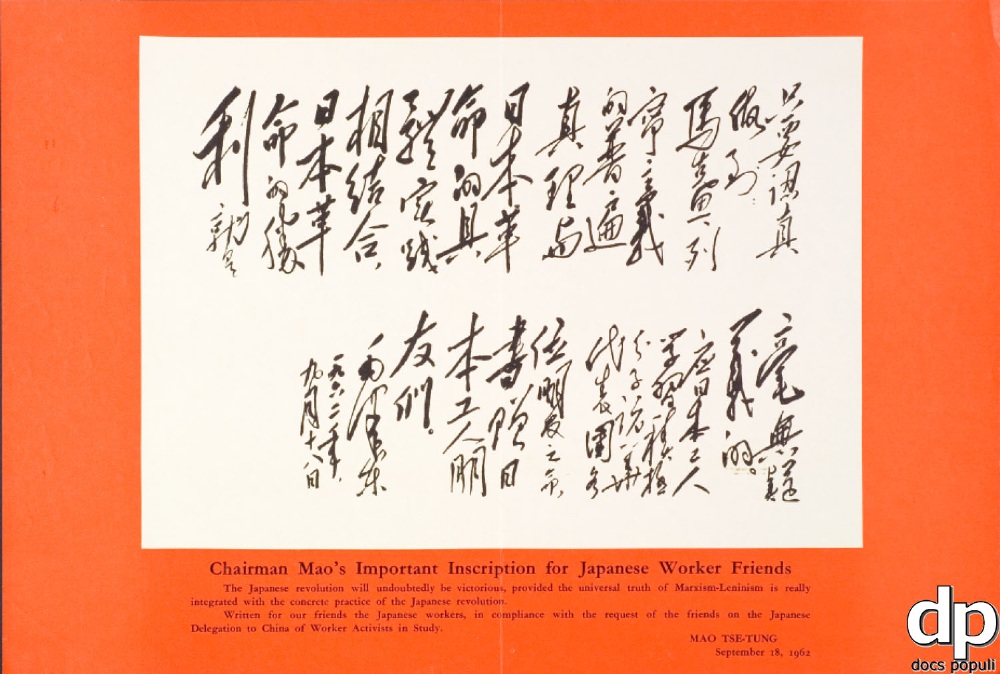 只要認真
做到
馬克思列
寧主義
的普遍
真理与
日本革
命的具
體实践
相結合,
日本革
命的勝
利就是
毫無疑
義的。
应日本工人
学習積極
分子訪華
代表團各
位朋友之命
書贈日
本工人朋
友們。
毛澤東
一九六二年,
九月十八日
Chairman Mao's Important Inscription for Japanese Worker Friends
The Japanese revolution will undoubtedly be victorious, provided the universal truth of Marxism-Leninism is really
integrated with the concrete practice of the Japanese revolution.
Written for our friends the Japanese workers, in compliance with the request of the friends on the Japanese
Delegation to China of Worker Activists in Study.
MAO TSE-TUNG
September 18, 1962
dp
docs populi